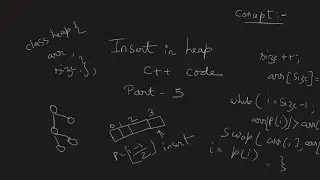 class heap {
arr,
size.},
Insert in heap
C++ code
Part - 5
0 1 2 3
P = [i-1/2] insert
Conupt :-
size ++;
arr[size] =
while ( i = size-1,
arr[p(i)] > arr
Swap( arr(i), arr
i = p(i)
}
}